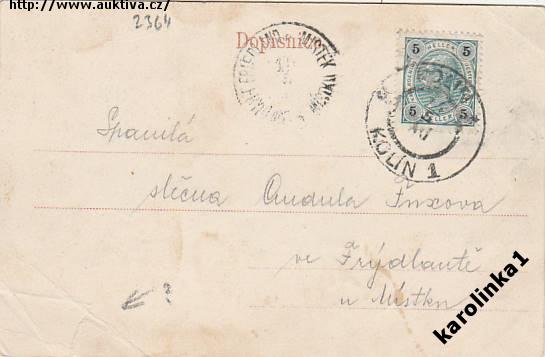 http://www.auktiva.cz/
2364
Dopisnice
FRIEDLAND MISTEK
5 5
HELLER HELLER
5 5
KOLÍN 1
Spanilá
slečna Andula
ve Frýdlantě
u Místku
?
karolinka1